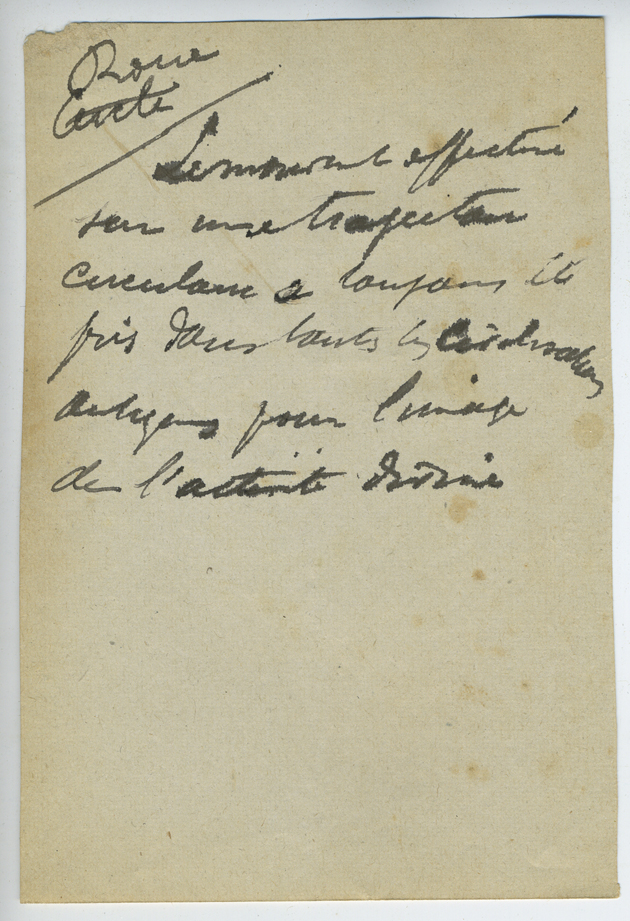 Roue
Cercle
Le mouvement effectué
sur une trajectoire
circulaire a toujours été
pris dans toutes les civilisations
antiques pour l'image
de l'activité divine